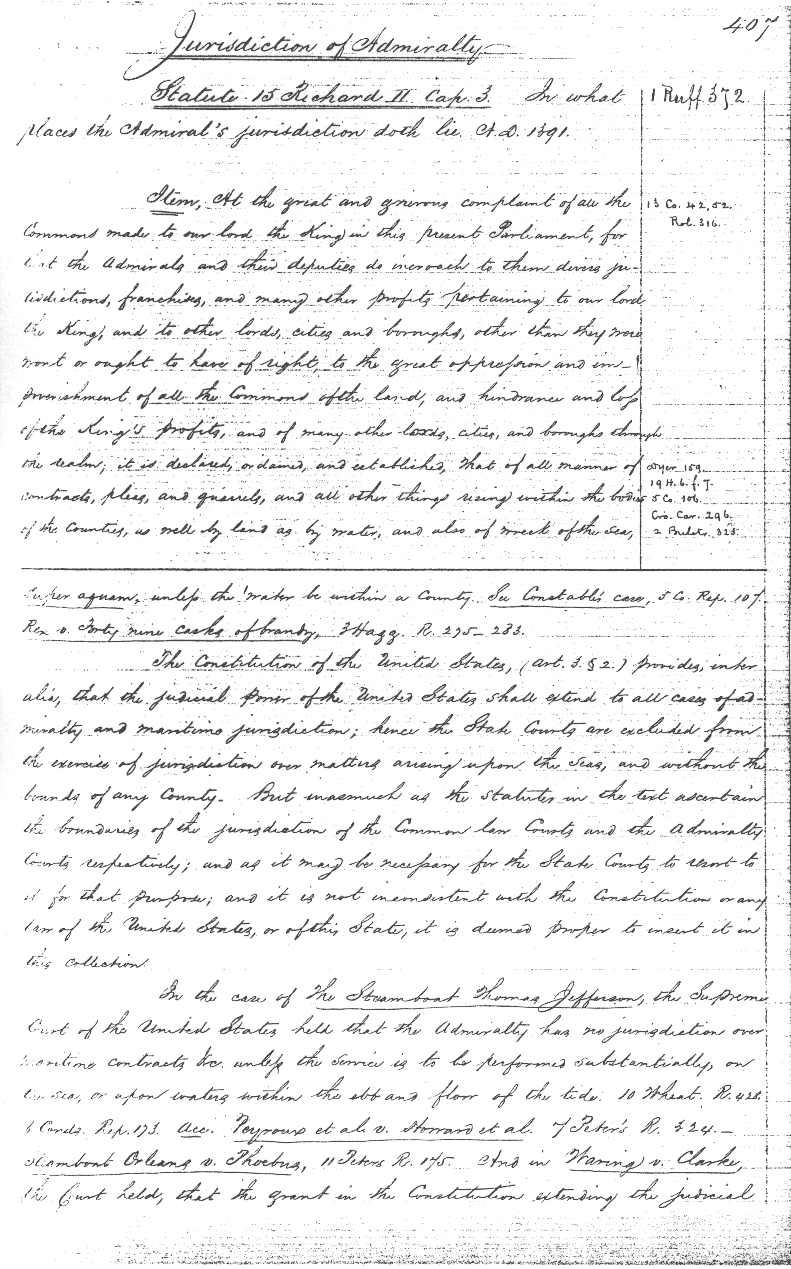 407
Jurisdiction of Admiralty
Statute 15 Richard II. Cap. 3. In what
1 Ruff. 372
places the Admiral's jurisdiction doth lie. A.D. 1391.
Item, At the great and grievous complaint of all the
13 Co. 42, 52.
Commons made to our lord the King in this present Parliament, for
Rol. 316.
that the Admirals and their deputies do incroach to them divers ju-
risdictions, franchises, and many other profits pertaining to our lord
the King, and to other lords, cities and boroughs, other than they were
wont or ought to have of right, to the great oppression and im-
poverishment of all the Commons of the land, and hindrance and loss
of the King's profits, and of many other lords, cities, and boroughs through
the realm; it is declared, ordained, and established, That of all manner of
Dyer 159.
19 H. 6. f. 7.
contracts, pleas, and quarrels, and all other things rising within the bodies
5 Co. 106.
Cro. Car. 296.
of the Counties, as well by land as by water, and also of wreck of the sea,
2 Bulstr. 323.
super aquam, unless the water be within a County. See Constable's case, 5 Co. Rep. 107.
Rex v. Forty nine casks of brandy, 3 Hagg. R. 275-283.
The Constitution of the United States, (Art. 3. § 2.) provides, inter
alia, that the judicial power of the United States shall extend to all cases of ad-
miralty and maritime jurisdiction; hence the State Courts are excluded from
the exercise of jurisdiction over matters arising upon the seas, and without the
bounds of any County. But inasmuch as the statutes in the text ascertain
the boundaries of the jurisdiction of the Common law Courts and the Admiralty
Courts respectively; and as it may be necessary for the State Courts to resort to
it for that purpose; and it is not inconsistent with the Constitution or any
law of the United States, or of this State, it is deemed proper to insert it in
this collection.
In the case of The Steamboat Thomas Jefferson, the Supreme
Court of the United States held that the Admiralty has no jurisdiction over
maritime contracts &c. unless the service is to be performed substantially, on
the sea, or upon waters within the ebb and flow of the tide. 10 Wheat. R. 428.
6 Conds. Rep. 173. Acc. Peyroux et al. v. Howard et al. 7 Peter's R. 324.-
Steamboat Orleans v. Phoebus, 11 Peters R. 175. And in Waring v. Clarke,
the Court held, that the grant in the Constitution extending the judicial